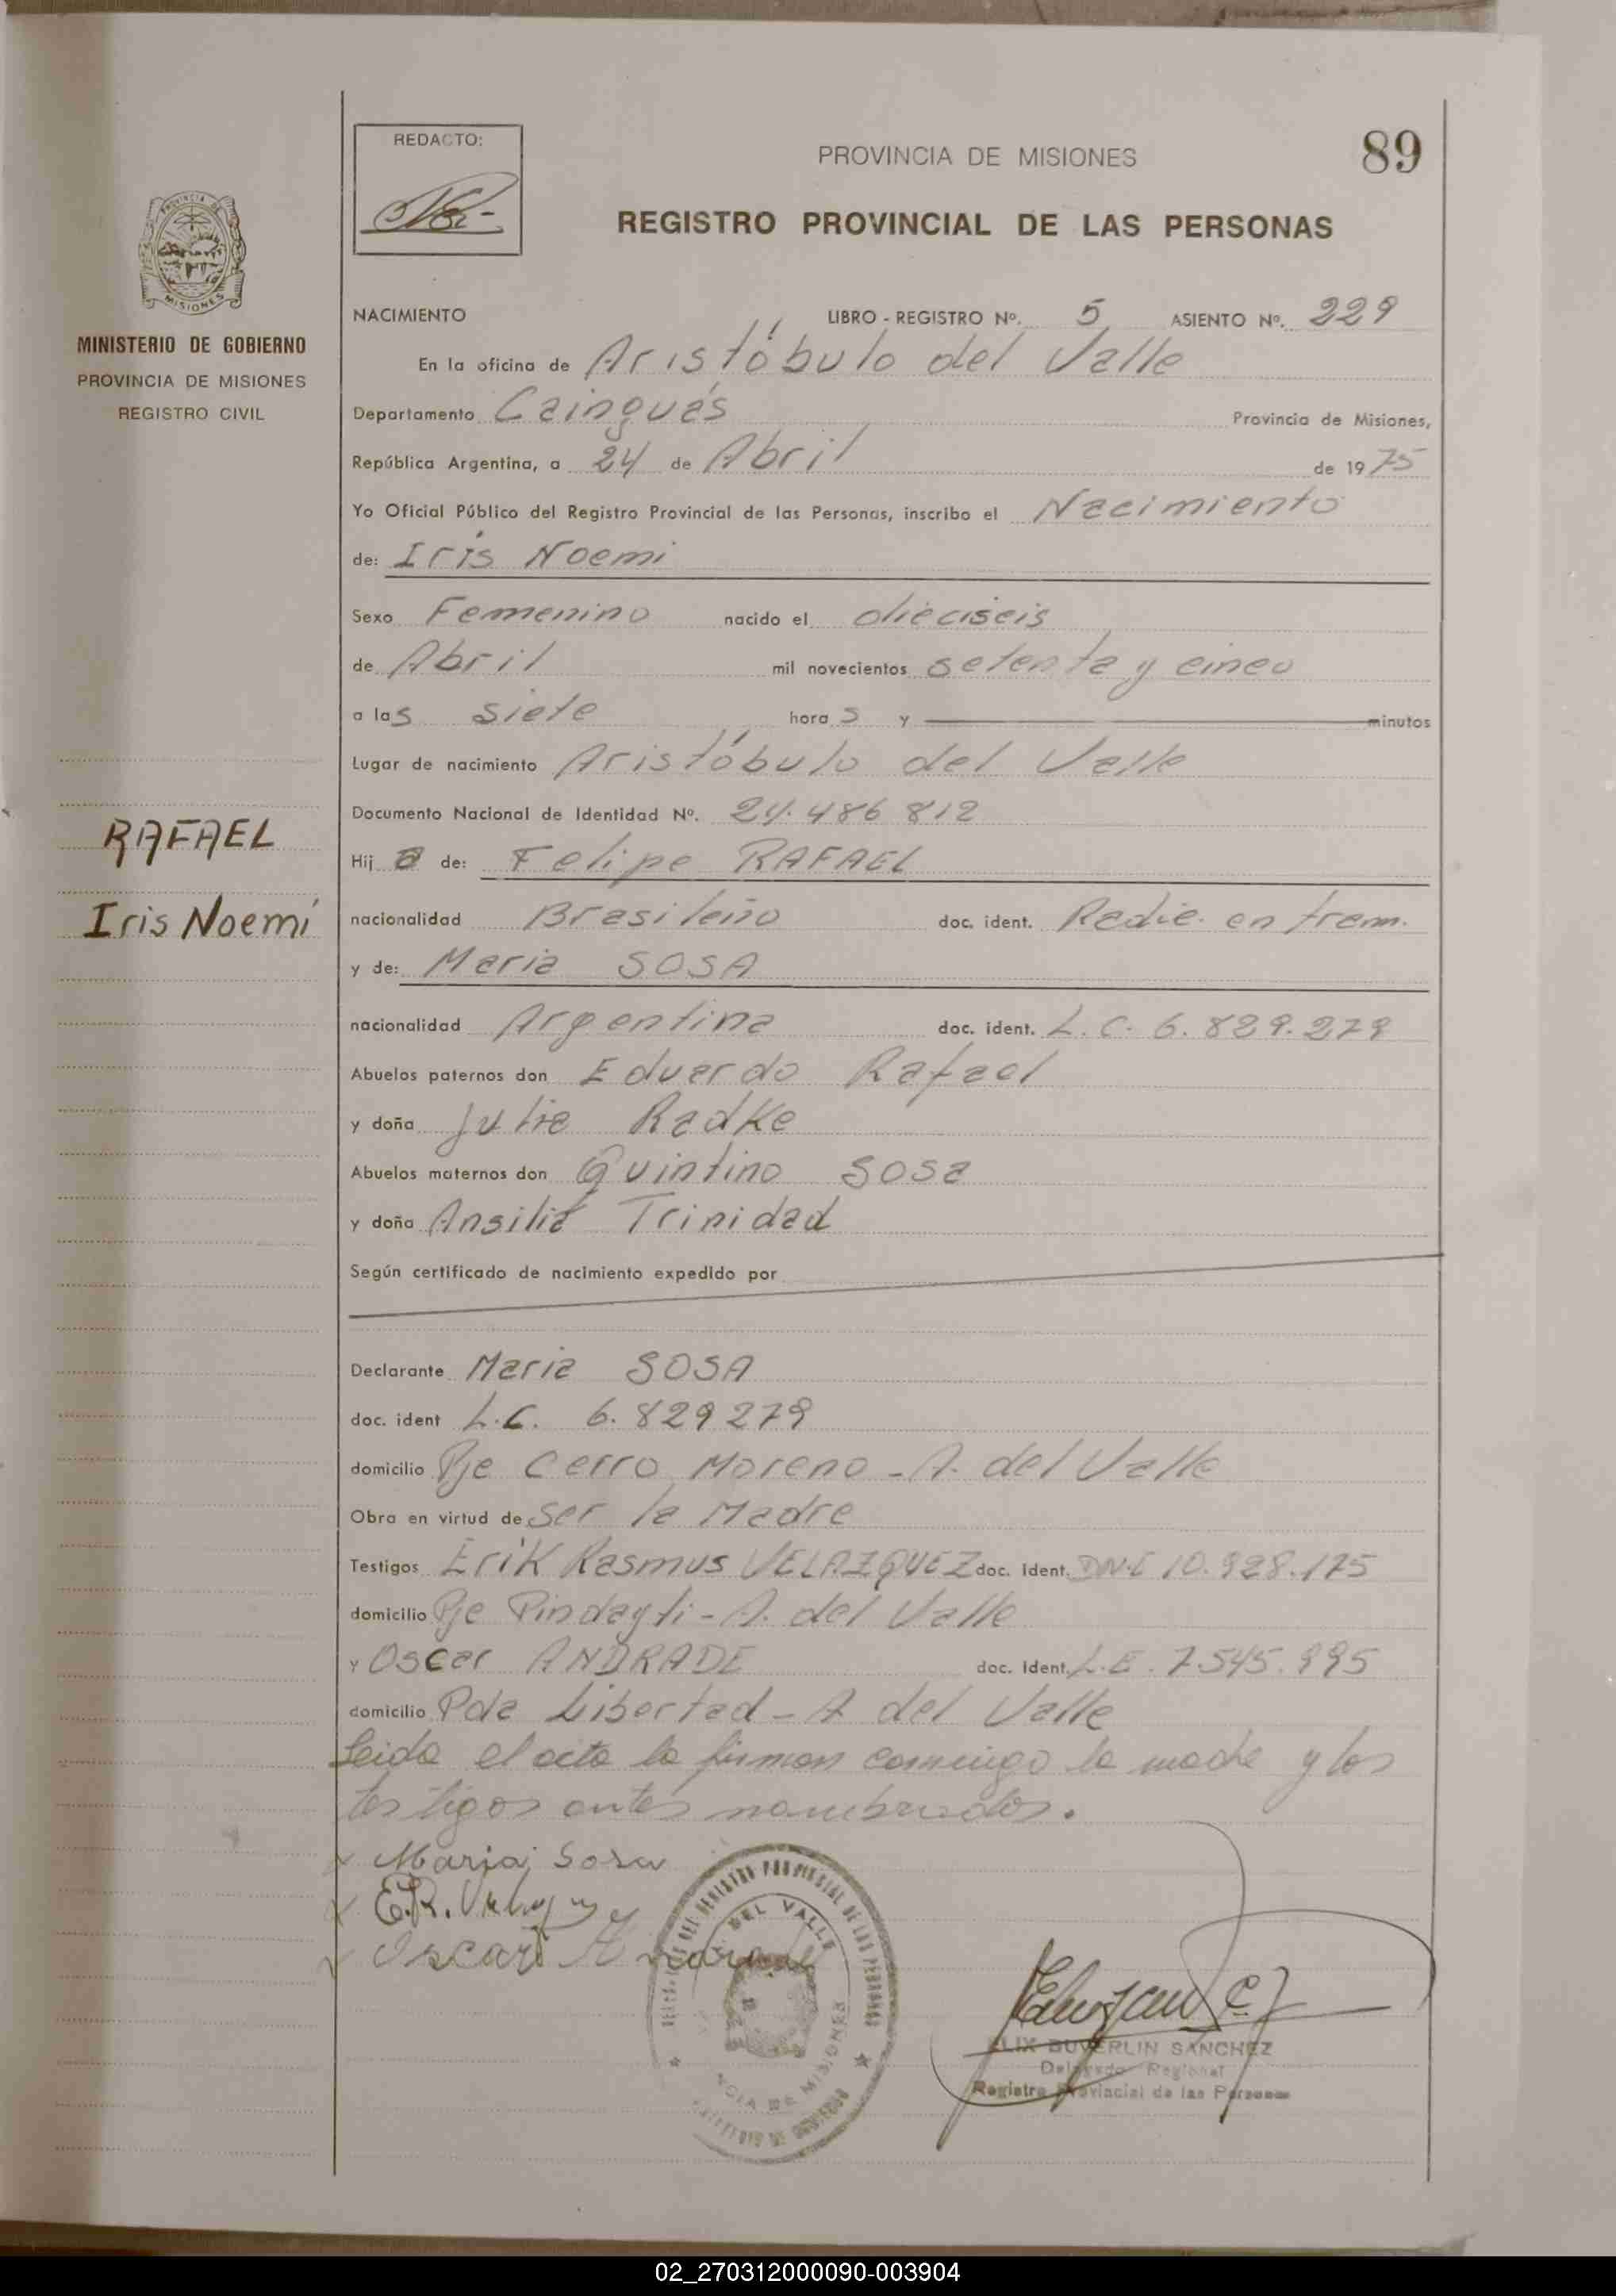 REDACTO:
PROVINCIA DE MISIONES
89
REGISTRO PROVINCIAL DE LAS PERSONAS
MISIONES
MINISTERIO DE GOBIERNO
PROVINCIA DE MISIONES
REGISTRO CIVIL
NACIMIENTO LIBRO - REGISTRO Nº. 5 ASIENTO Nº. 229
En la oficina de Aristóbulo del Valle
Departamento Cainguás Provincia de Misiones,
República Argentina, a 24 de Abril de 1975
Yo Oficial Público del Registro Provincial de las Personas, inscribo el Nacimiento
de: Iris Noemi
Sexo Femenino nacido el dieciseis
de Abril mil novecientos setenta y cinco
a las siete horas y minutos
Lugar de nacimiento Aristóbulo del Valle
Documento Nacional de Identidad Nº. 24.486 812
RAFAEL
Hija de: Felipe RAFAEL
Iris Noemí
nacionalidad Brasileño doc. ident. Radic. en tram.
y de: Maria SOSA
nacionalidad Argentina doc. ident. L.C. 6.829.279
Abuelos paternos don Eduardo Rafael
y doña Julia Radke
Abuelos maternos don Quintino Sosa
y doña Ansilia Trinidad
Según certificado de nacimiento expedido por
Declarante Maria SOSA
doc. ident L.C. 6.829279
domicilio Pje Cerro Moreno - A. del Valle
Obra en virtud de ser la Madre
Testigos Erik Rasmus VELAZQUEZ doc. Ident. DNI 10.928.175
domicilio Pje Pindayti - A. del Valle
y Oscar ANDRADE doc. Ident. L.E. 7.545.995
domicilio Pda Libertad - A del Valle
Leida el acta la firman conmigo la madre y los
testigos antes nombrados.
Maria Sosa
E.R.
Oscar
DEL REGISTRO PROVINCIAL DE LAS PERSONAS
DEL VALLE
MISIONES
SANCHEZ
Delegado Regional
Registro Provincial de las Personas
02_270312000090-003904